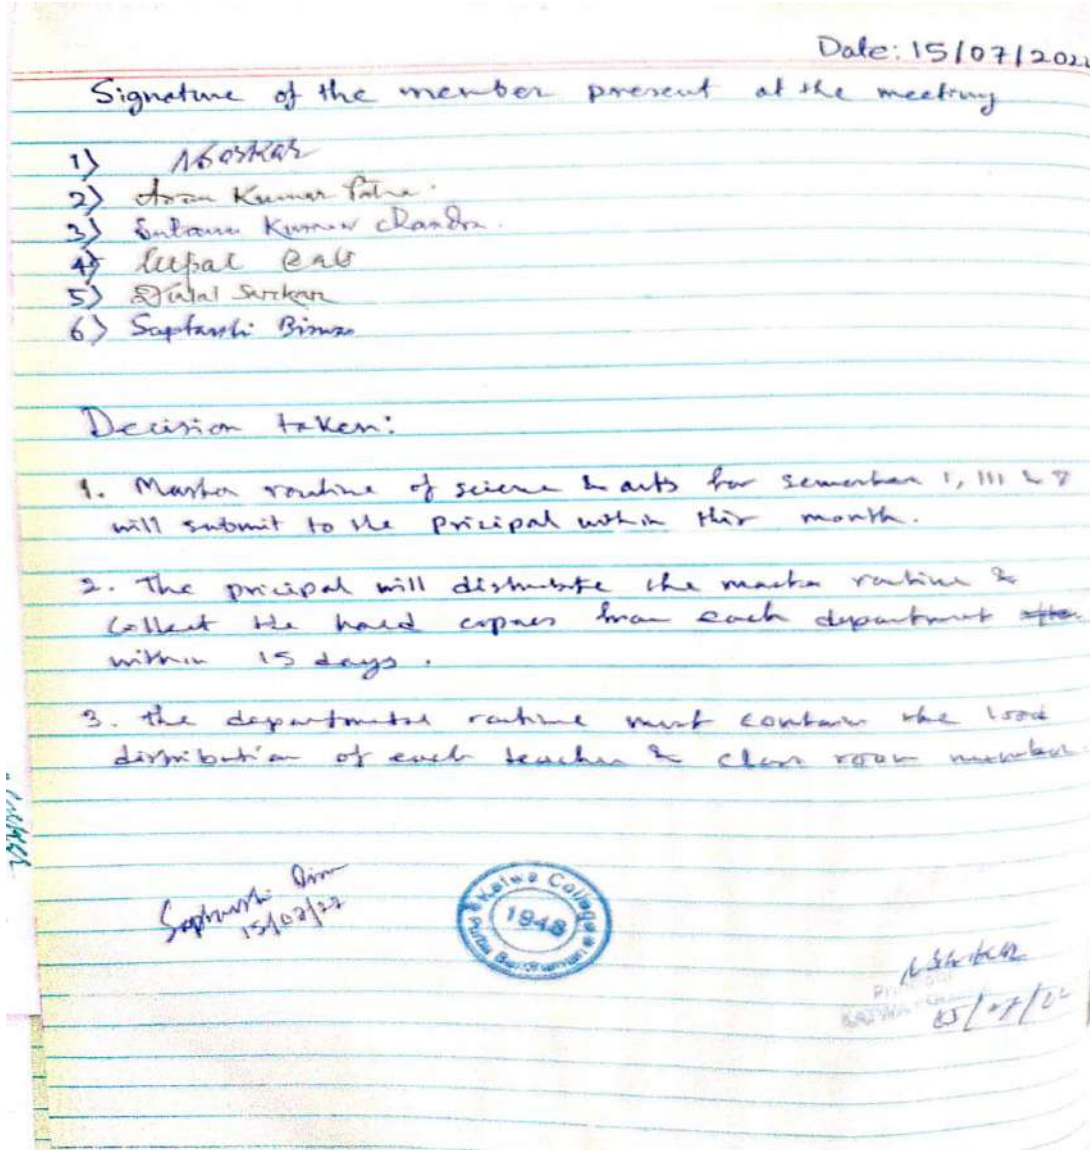 Date: 15/07/202
Signature of the member present at the meeting
1)
2) Kumar
3) Kumar Chandra.
4)
5) Sarkar
6) Saptarshi
Decision taken:
1. Master routine of science & arts for semester I, III &
will submit to the pricipal within this month.
2. The pricipal will distribute the master routine &
collect the hard copies from each department
within 15 days.
3. the departmental routine must contain the load
distribution of each teacher & class room number.
Saptarshi
15/07/22
Katwa College
1948
Purba Bardhaman
15/07/22